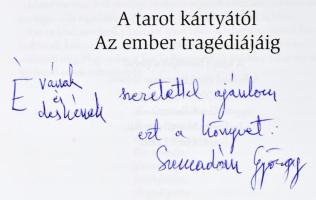 A tarot kártyától
Az ember tragédiájáig
Évának
és
szeretettel ajánlom
ezt a könyvet:
Szemadám György